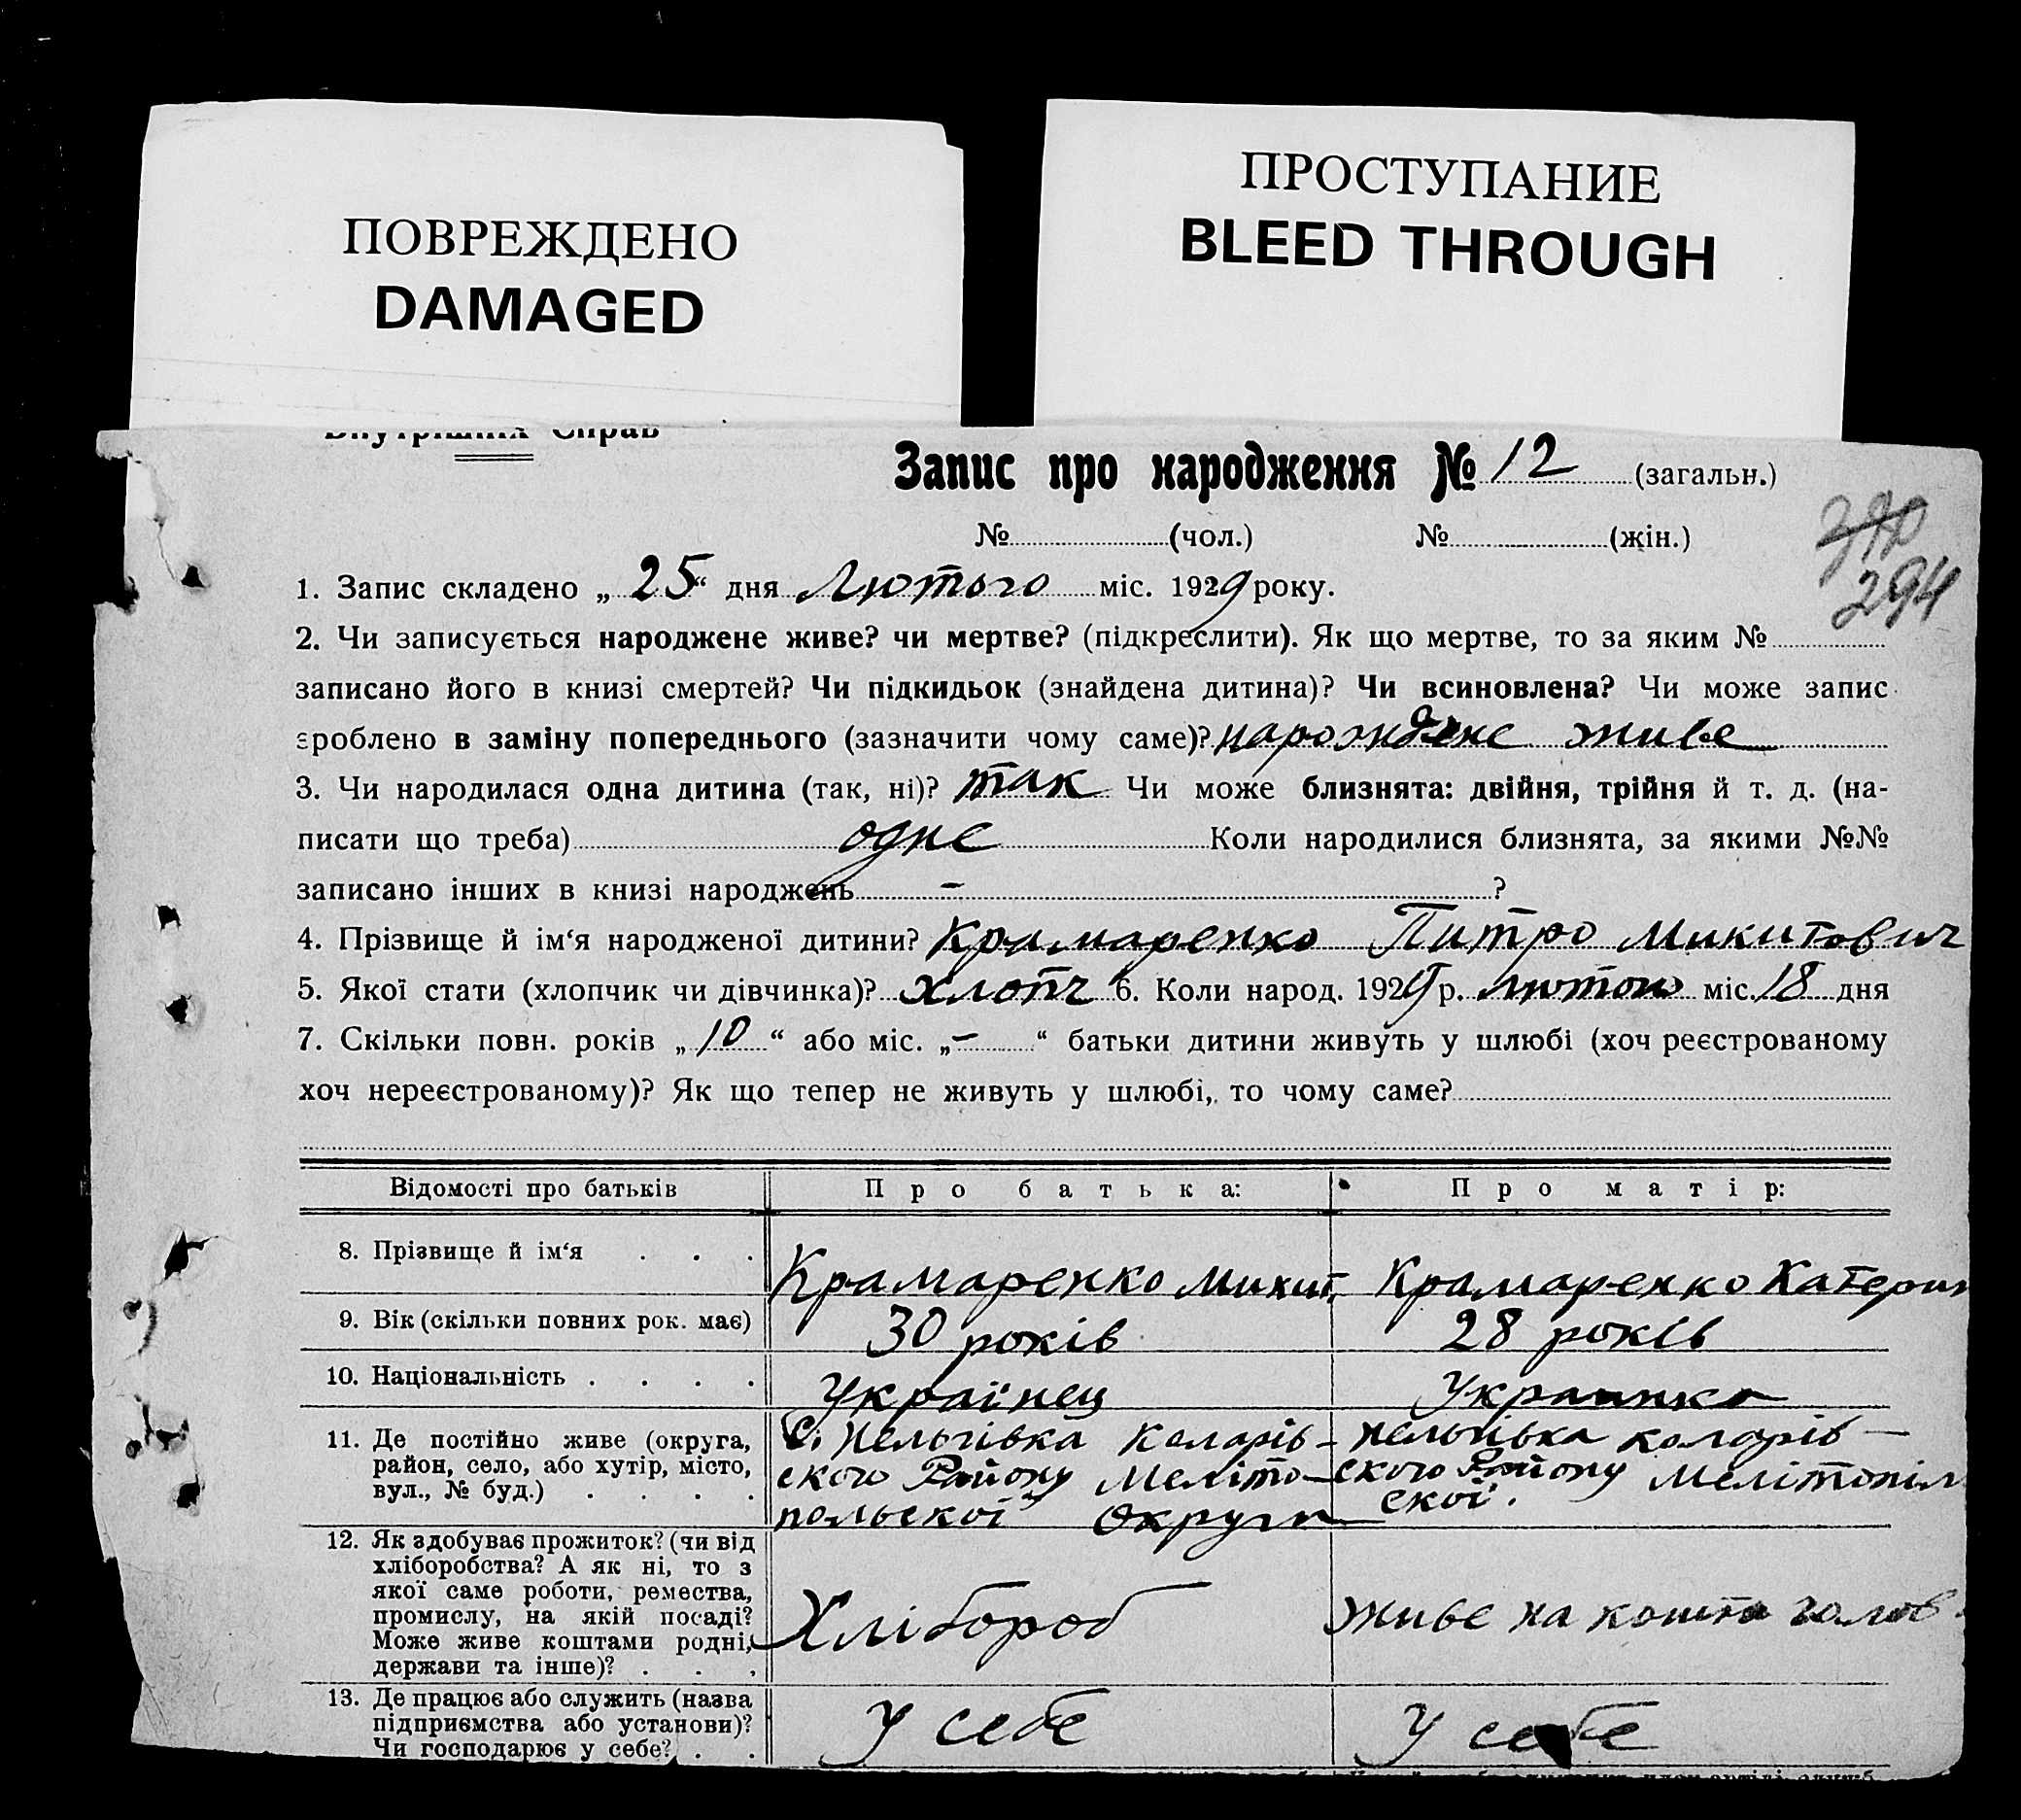 ПОВРЕЖДЕНО
DAMAGED
ПРОСТУПАНИЕ
BLEED THROUGH
Внутрішніх Справ
Запис про народження № 12 (загальн.)
№ (чол.) № (жін.)
390
294
1. Запис складено „ 25 “ дня Лютого міс. 1929 року.
2. Чи записується народжене живе? чи мертве? (підкреслити). Як що мертве, то за яким №
записано його в книзі смертей? Чи підкидьок (знайдена дитина)? Чи всиновлена? Чи може запис
зроблено в заміну попереднього (зазначити чому саме)? народжене живе
3. Чи народилася одна дитина (так, ні)? так Чи може близнята: двійня, трійня й т. д. (на-
писати що треба) одне Коли народилися близнята, за якими №№
записано інших в книзі народжень - ?
4. Прізвище й ім‘я народженої дитини? Крамаренко Питро Микитович
5. Якої стати (хлопчик чи дівчинка)? хлопч 6. Коли народ. 1929 р. лютого міс. 18 дня
7. Скільки повн. років „ 10 “ або міс. „ - “ батьки дитини живуть у шлюбі (хоч реєстрованому
хоч нереєстрованому)? Як що тепер не живуть у шлюбі, то чому саме?
Відомості про батьків Про батька: Про матір:
8. Прізвище й ім‘я . . . Крамаренко Микит. Крамаренко Катерин
9. Вік (скільки повних рок. має) 30 років 28 років
10. Національність . . . . Українец Украинка
11. Де постійно живе (округа,
район, село, або хутір, місто,
вул., № буд.) . . . .
С. Нельгівка Коларів-
ского Району Меліто-
польскої Округи
Нельгівка коларів-
ского Району Мелітопіл
скої.
12. Як здобуває прожиток? (чи від
хліборобства? А як ні, то з
якої саме роботи, ремества,
промислу, на якій посаді?
Може живе коштами родні,
держави та інше)? . . .
Хлібороб
живе на кошта голов.
13. Де працює або служить (назва
підприємства або установи)?
Чи господарює у себе? . .
У себе
У себе